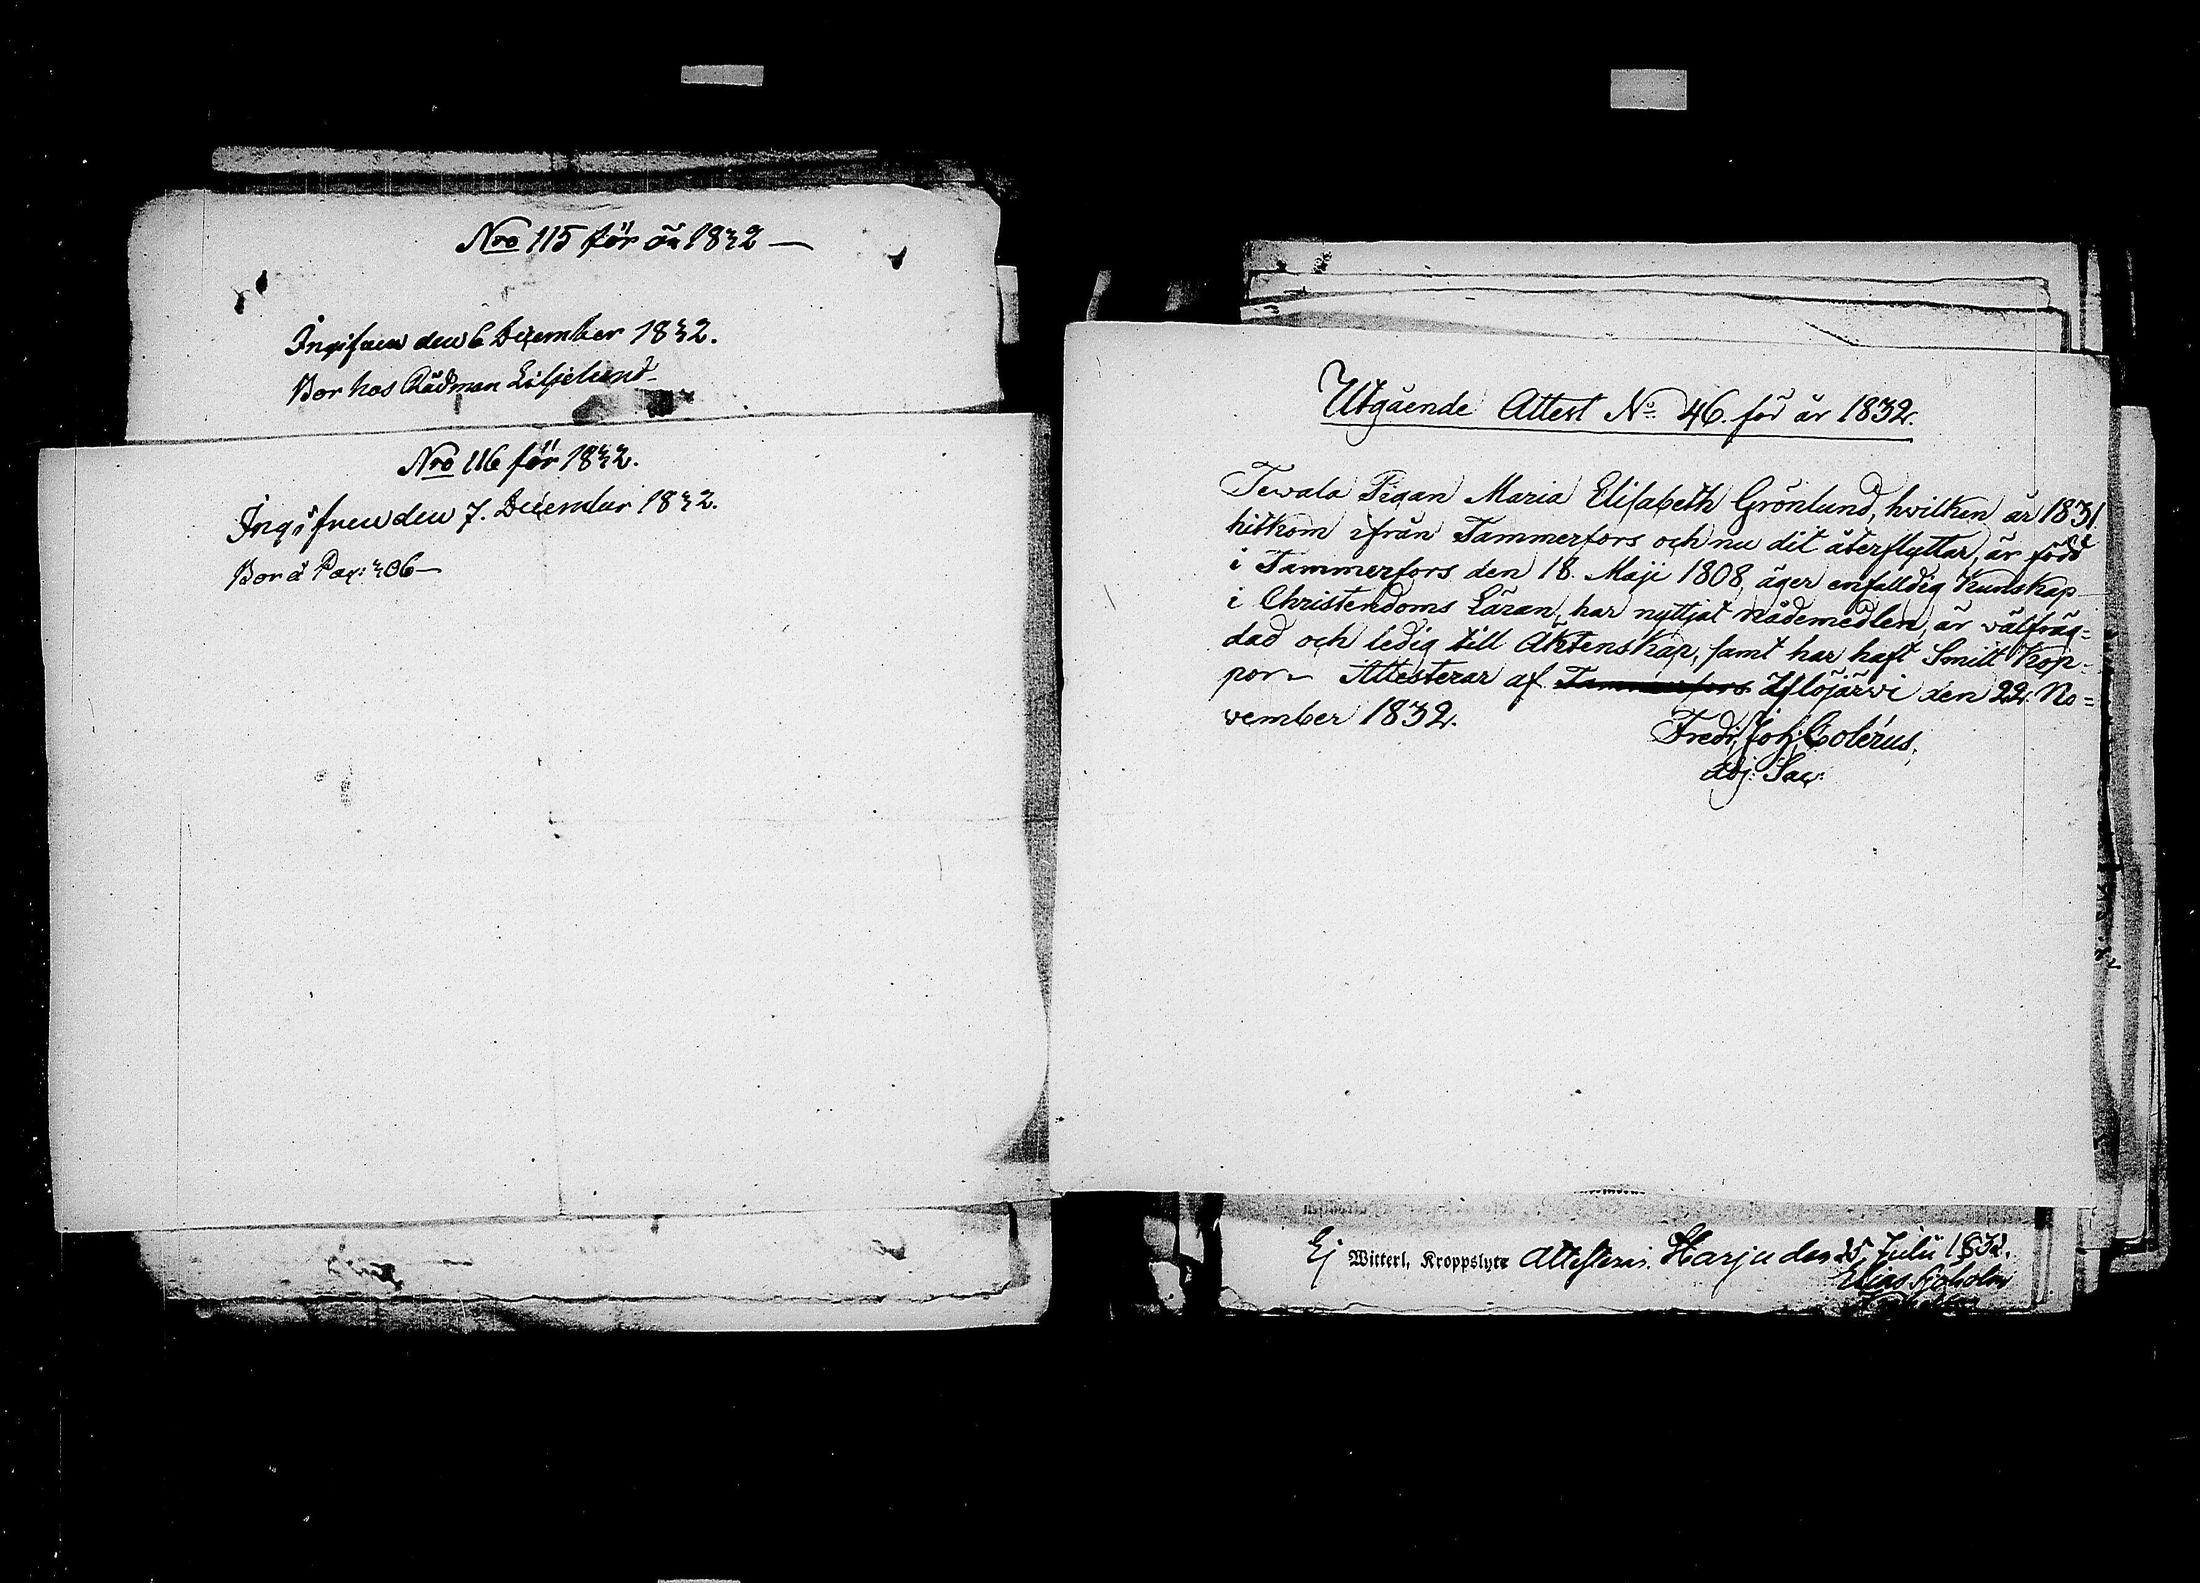 Nro 115 för år 1832 —
Ingifven den 6 December 1832.
Bor hos Rådman Liljelund
Nro 116 för 1832.
Ingifven den 7. December 1832.
Bor å Pag: 306 —
Utgående Attest No. 46. för år 1832.
Tewala Pigan Maria Elisabeth Grönlund, hvilken år 1831
hitkom ifrån Tammerfors och nu dit återflyttar, är född
i Tammerfors den 18. Maji 1808, äger enfalldig Kunskap
i Christendoms Läran, har nyttjat nådemedlen, är välfräg=
dad och ledig till Äktenskap, samt har haft Smitt Kop-
por. Attesterar af Tammerfors Yflöjärvi den 22. No=
vember 1832.
Fredr. Joh. Colérus,
adj: Sac:
Ej Witterl, Kroppslyte Attesterar. Harju den 25 Julii 1832.